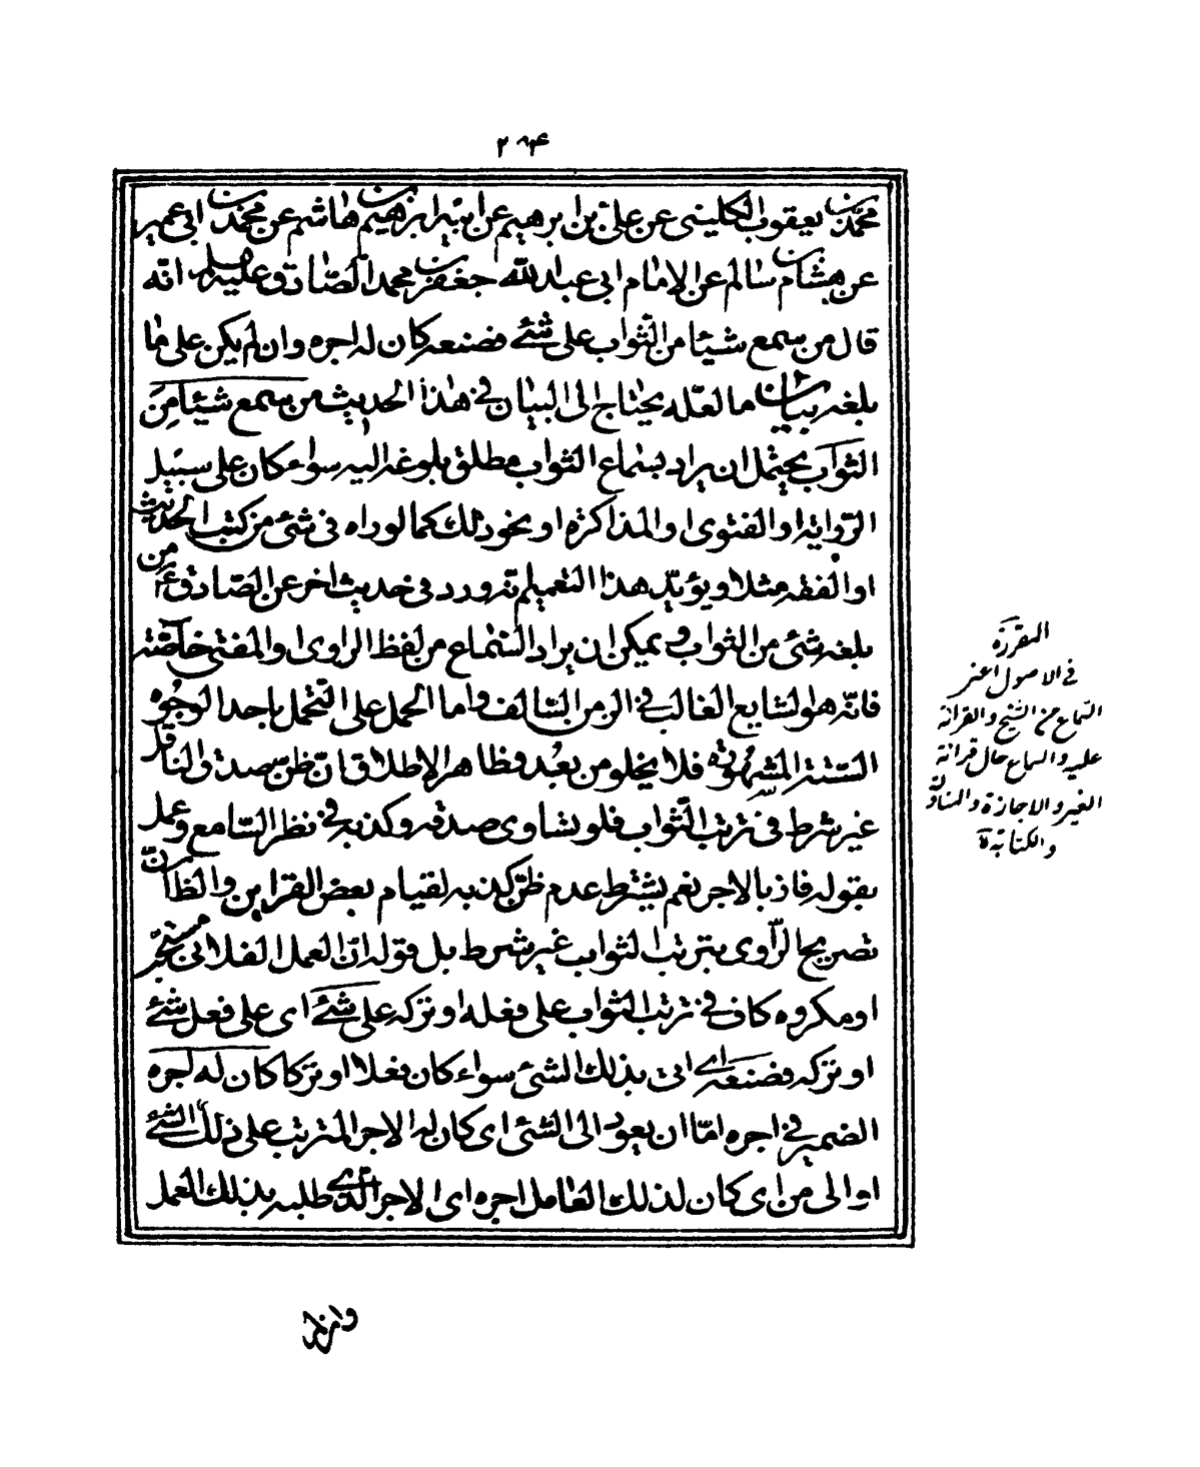 ٢٠٤
محمّد بن يعقوب الكلينى عن علىّ بن ابرهيم عن ابيه ابرهيم بن هاشم عن محمّد بن ابى عمير
عن هشام بن سالم عن الامام ابى عبد الله جعفر بن محمد الصّادق عليه السلم انّه
قال من سمع شيئا من الثواب على شئ فصنعه كان له اجره وان لم يكن على ما
بلغه بيان ما لعلّه يحتاج الى البيان فى هذا الحديث من سمع شيئا من
الثواب يحتمل ان يراد بسماع الثواب مطلق بلوغه اليه سواء كان على سبيل
الرّواية او الفتوى او المذاكرة او نحو ذلك كما لو راه فى شئ من كتب الحديث
او الفقه مثلا ويؤيّد هذا التعميم انّه ورد فى حديث اخر عن الصّادق ع من
بلغه شئ من الثواب ويمكن ان يراد السّماع من لفظ الراوى او المفتى خاصّة
فانّه هو الشايع الغالب فى الزمن السّالف واما الحمل على التّحمل باحد الوجوه
الستّة المشهورة فلا يخلو من بعُد وظاهر الاطلاق انّ ظن صدق الناقل
غير شرط فى ترتب الثّواب فلو تساوى صدقه وكذبه فى نظر السّامع وعمل
بقوله فاز بالاجر نعم يشترط عدم ظنّ كذبه لقيام بعض القراين والظاّ انّ
تصريح الرّاوى بترتب الثواب غير شرط بل قوله انّ العمل الفلانى مستحبّ
او مكروه كاف فى ترتب الثواب على فعله او تركه على شئ اى على فعل شئ
او تركه فصنعه اى اتى بذلك الشئ سواء كان فعلا او تركا كان له اجره
الضمير فى اجره امّا ان يعود الى الشئ اى كان له الاجر المترتب على ذلك الشئ
او الى من اى كان لذلك العامل اجره اى الاجر الذى طلبه بذلك العمل
المقررة
فى الاصول اعنى
السّماع من الشّيخ والقرائة
عليه والسماع حال قرائة
الغير والاجازة والمناولة
والكتابة